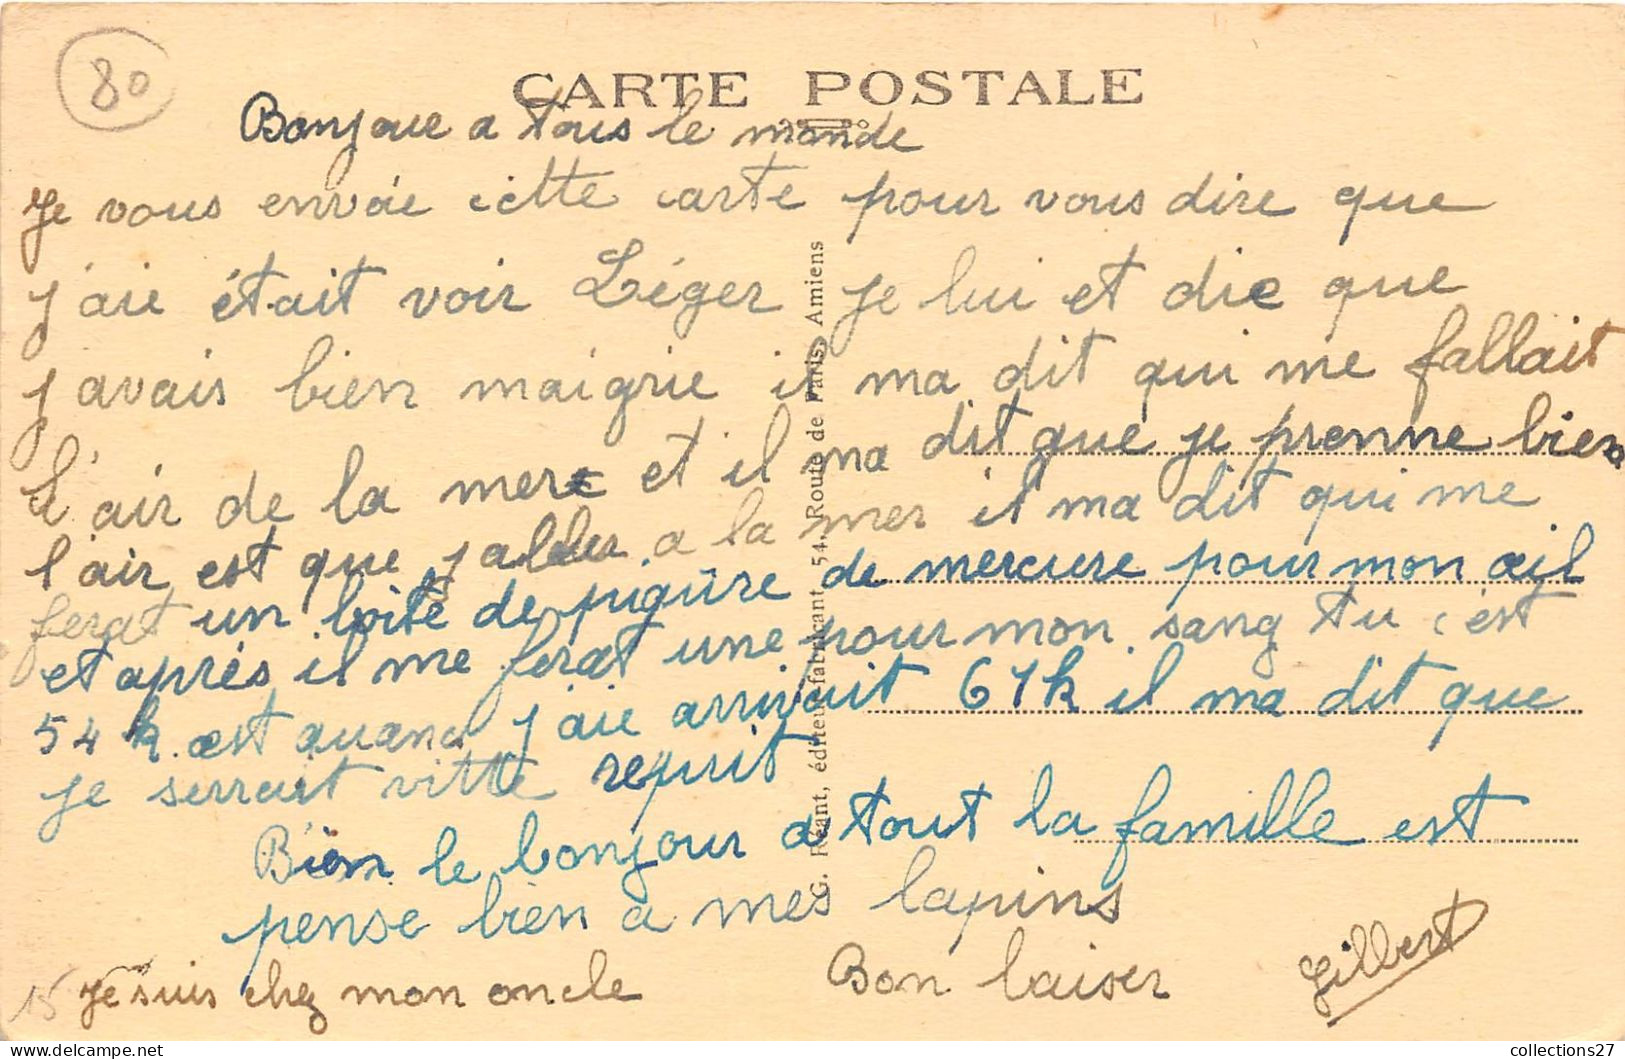 80
CARTE POSTALE
Bonjoue a tous le monde
Je vous envoie cette carte pour vous dire que
j'aie était voir Léger je lui et die que
j'avais bien maigrie il ma dit qui me fallait
l'air de la mer et il ma dit que je prenne bien
l'air est que j'alles a la mer il ma dit qui me
ferat un boite de piqûre de mercure pour mon œil
et après il me ferat une pour mon sang tu c'est
54 k. est quand j'aie arrivait 61k il ma dit que
je serrait vitte repuit
Bien le bonjour a tout la famille est
pense bien a mes lapins
Je suis chez mon oncle Bon baiser Gilbert
15
G. Réant, éditeur-fabricant, 54, Route de Paris, Amiens
collections27